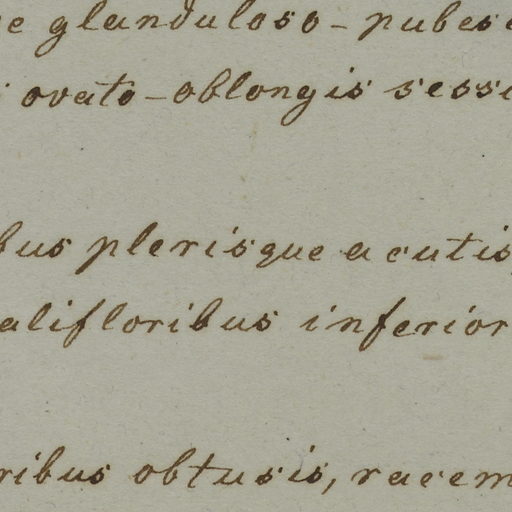 e glanduloso-pubesc
ovato-oblongis sessi
bus plerisque acutis
alifloribus inferior
ribus obtusis, racem